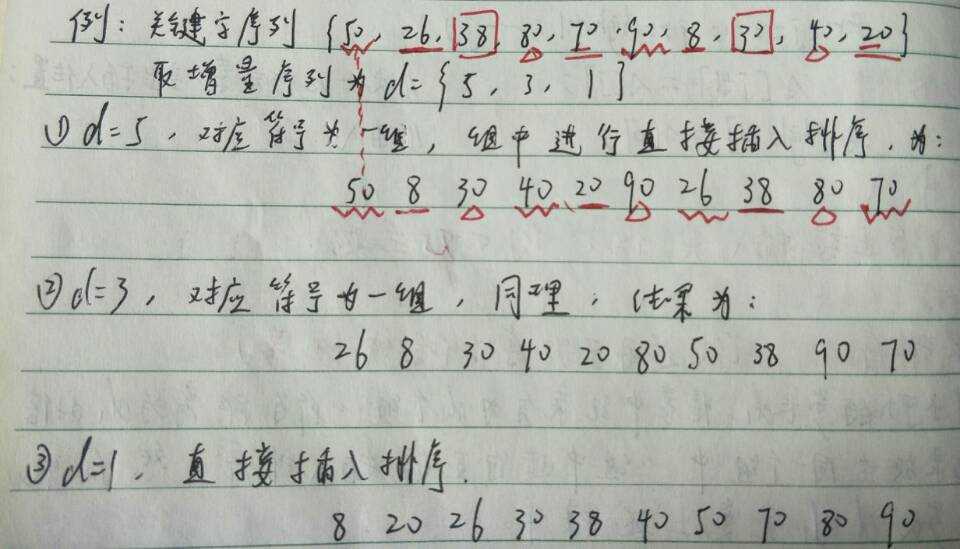 例：关键字序列 {50, 26, 38, 80, 70, 90, 8, 30, 40, 20}
取增量序列为 d={5, 3, 1}
① d=5，对应符号为一组，组中进行直接插入排序，为：
50 8 30 40 20 90 26 38 80 70
② d=3，对应符号为一组，同理，结果为：
26 8 30 40 20 80 50 38 90 70
③ d=1，直接插入排序．
8 20 26 30 38 40 50 70 80 90